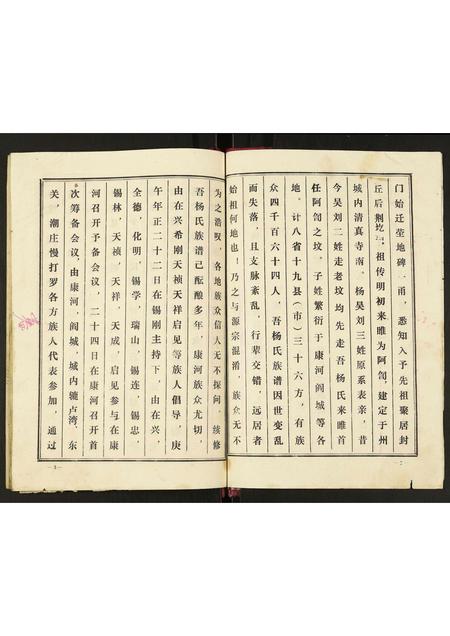 门始迁茔地碑一甬，悉知入予先祖聚居封
丘后荆圪，祖传明初来睢为阿訇，建定于州
城内清真寺南。杨吴刘三姓原系表亲，昔
今吴刘二姓走老坟均先走吾杨氏来睢首
任阿訇之坟。子姓繁衍于康河阎城等各
地。计八省十九县（市）三十六方，有族
众四千百六十四人，吾杨氏族谱因世变乱
而失落，且支脉紊乱，行辈交错，远居者
始祖何地也！乃之与源宗混淆，族众无不
为之浩叹，各地族众信人无不探问　续修
吾杨氏族谱已酝酿多年，康河族众尤切，
由在兴希刚天祯天祥启见等族人倡导，庚
午年正二十二日在锡刚主持下，由在兴，
全德，化明，锡学，瑞山，锡连，锡忠，
锡林，天祯，天祥，天成，启见参与在康
河召开予备会议，二十四日在康河召开首
次筹备会议，由康河，阎城，城内辘卢湾，东
关，潮庄慢打罗各方族人代表参加，通过
—3—